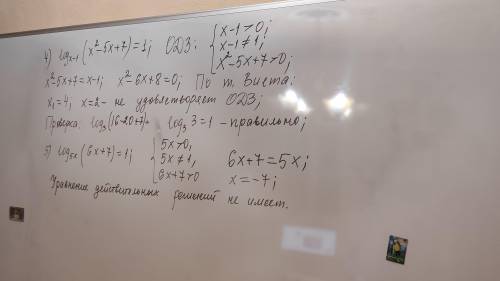 4) log_{x-1}(x²-5x+7)=1; ОДЗ: { x-1>0; x-1≠1; x²-5x+7>0;
x²-5x+7=x-1; x²-6x+8=0; По т. Виета:
x₁=4; x=2 - не удовлетворяет ОДЗ;
Проверка: log₃(16-20+7)= log₃3=1 - правильно;
5) log_{5x}(6x+7)=1; { 5x>0, 5x≠1, 6x+7>0 6x+7=5x; x=-7;
Уравнение действительных решений не имеет.